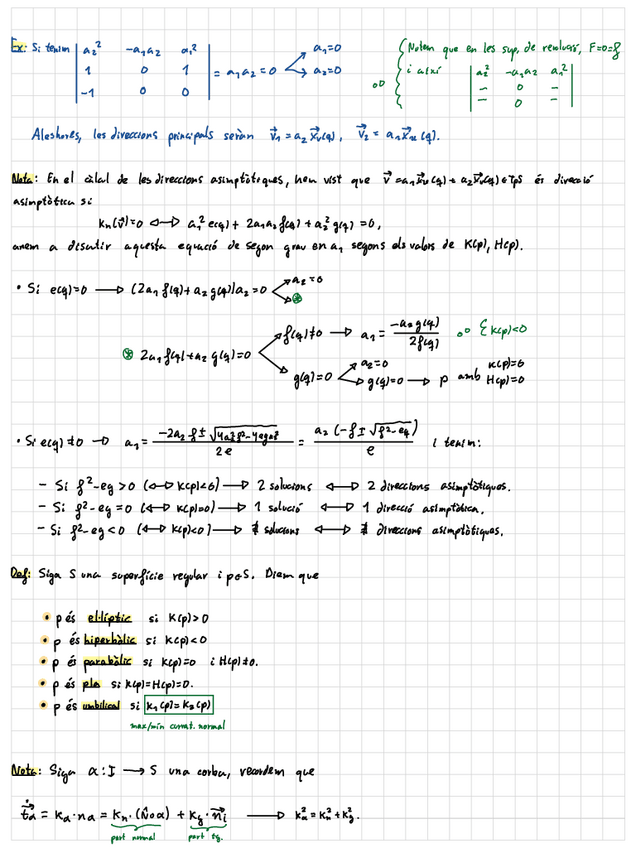 Ex: Si tenim | a₂² -a₁a₂ a₁² |
| 1 0 1 |
| -1 0 0 | = a₁a₂ = 0
a₁=0
a₂=0
Notem que en les sup. de revolució, F=0=f
i així | a₂² -a₁a₂ a₁² |
| – 0 – |
| – 0 – |
Aleshores, les direccions principals seran v⃗₁ = a₂ x⃗ᵥ(q), v⃗₂ = a₁ x⃗ᵤ(q).
Nota: En el càlcul de les direccions asimptòtiques, hem vist que v⃗ = a₁x⃗ᵤ(q) + a₂x⃗ᵥ(q) ∈ TpS és direcció
asimptòtica si
kn(v⃗)=0 ⟺ a₁² e(q) + 2a₁a₂ f(q) + a₂² g(q) = 0,
anem a discutir aquesta equació de segon grau en a₁ segons els valors de K(p), H(p).
• Si e(q)=0 ⟶ (2a₁ f(q) + a₂ g(q))a₂ = 0
a₂=0
⊛
⊛ 2a₁ f(q) + a₂ g(q) = 0
f(q)≠0 ⟶ a₁ = -a₂g(q) / 2f(q) ∘∘ { K(p)<0
g(q)=0
a₂=0
g(q)=0 ⟶ p amb K(p)=0 H(p)=0
• Si e(q)≠0 ⟶ a₁ = (-2a₂f ± √(4a₂²f²-4ega₂²)) / 2e = a₂(-f ± √(f²-eg)) / e i tenim:
– Si f²-eg > 0 (⟺ K(p)<0) ⟶ 2 solucions ⟺ 2 direccions asimptòtiques.
– Si f²-eg = 0 (⟺ K(p)=0) ⟶ 1 solució ⟺ 1 direcció asimptòtica.
– Si f²-eg < 0 (⟺ K(p)<0) ⟶ ∄ solucions ⟺ ∄ direccions asimptòtiques.
Def: Siga S una superfície regular i p∈S. Diem que
• p és el·líptic si K(p)>0
• p és hiperbòlic si K(p)<0
• p és parabòlic si K(p)=0 i H(p)≠0.
• p és pla si K(p)=H(p)=0.
• p és umbilical si k₁(p)=k₂(p)
max/min curvat. normal
Nota: Siga α: I ⟶ S una corba, recordem que
t⃗α̇ = kα·nα = kn·(N̂∘α) + kg·n⃗i ⟶ kα² = kn² + kg².
part normal part tg.